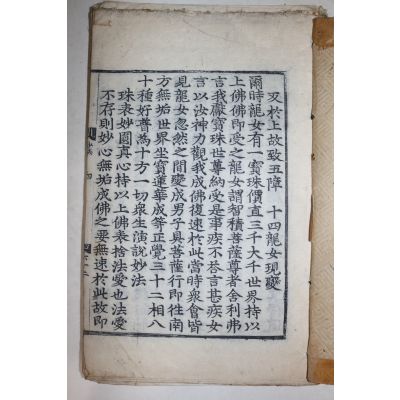 又於上故致五障　十四龍女現變
爾時龍女有一寶珠價直三千大千世界持以
上佛佛即受之龍女謂智積菩薩尊者舍利弗
言我厭寶珠世尊納受是事疾不荅言甚疾女
言以汝神力觀我成佛復速於此當時衆會皆
見龍女忽然之間變成男子具菩薩行即往南
方無垢世界坐寶蓮華成等正覺三十二相八
十種好普為十方一切衆生演說妙法
珠表妙圓真心持以上佛表捨法愛也法愛
不存則妙心無垢成佛之要無速於此故即